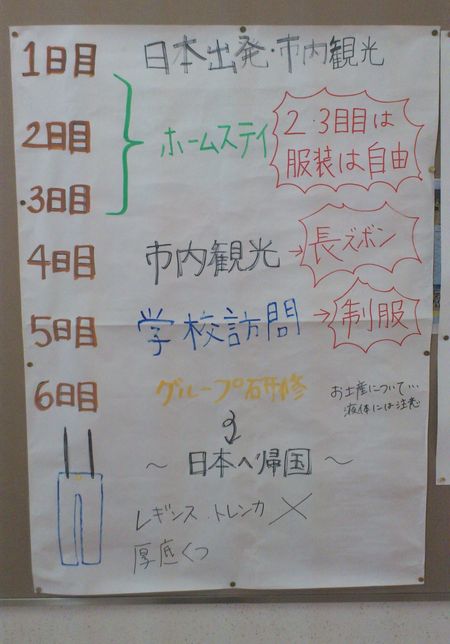 1日目 日本出発・市内観光
2日目 ホームステイ
2・3日目は
服装は自由
3日目
4日目 市内観光→長ズボン
5日目 学校訪問→制服
6日目 グループ研修
お土産について…
液体には注意
～日本へ帰国～
レギンス・トレンカ ×
厚底くつ